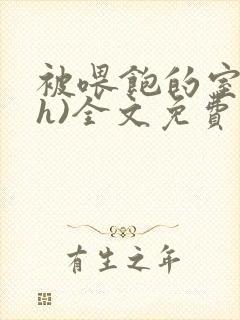 被喂飽的室
h)全文免費
有生之年